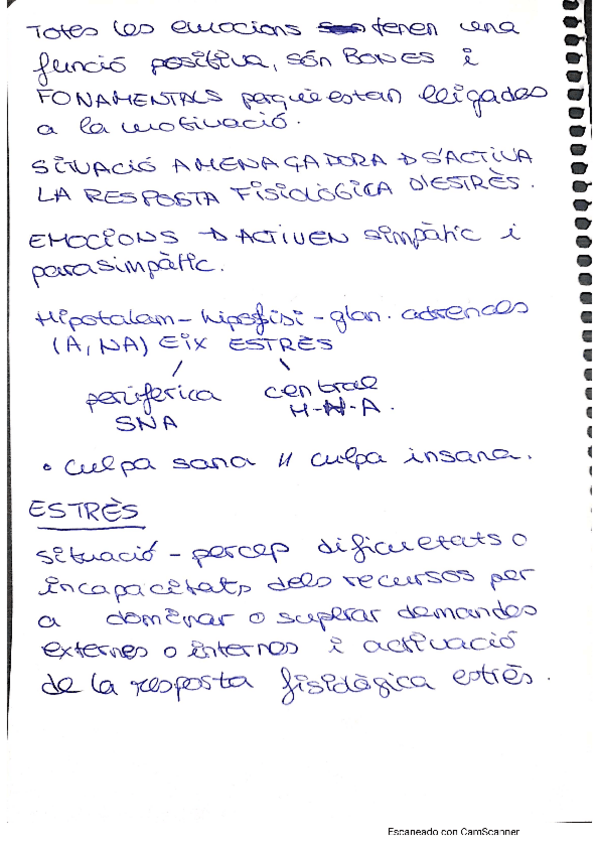 Totes les emocions tenen una
funció positiva, són BONES i
FONAMENTALS perquè estan lligades
a la motivació.
SITUACIÓ AMENAÇADORA → S'ACTIVA
LA RESPOSTA FISIOLÒGICA D'ESTRÈS.
EMOCIONS → ACTIVEN simpàtic i
parasimpàtic.
Hipotalam - hipofisi - glan. adrenales
(A, NA) EIX ESTRÈS
perifèrica central
SNA H-H-A.
• culpa sana // culpa insana.
ESTRÈS
situació - percep dificultats o
incapacitats dels recursos per
a dominar o superar demandes
externes o internes i activació
de la resposta fisiològica estrès.
Escaneado con CamScanner